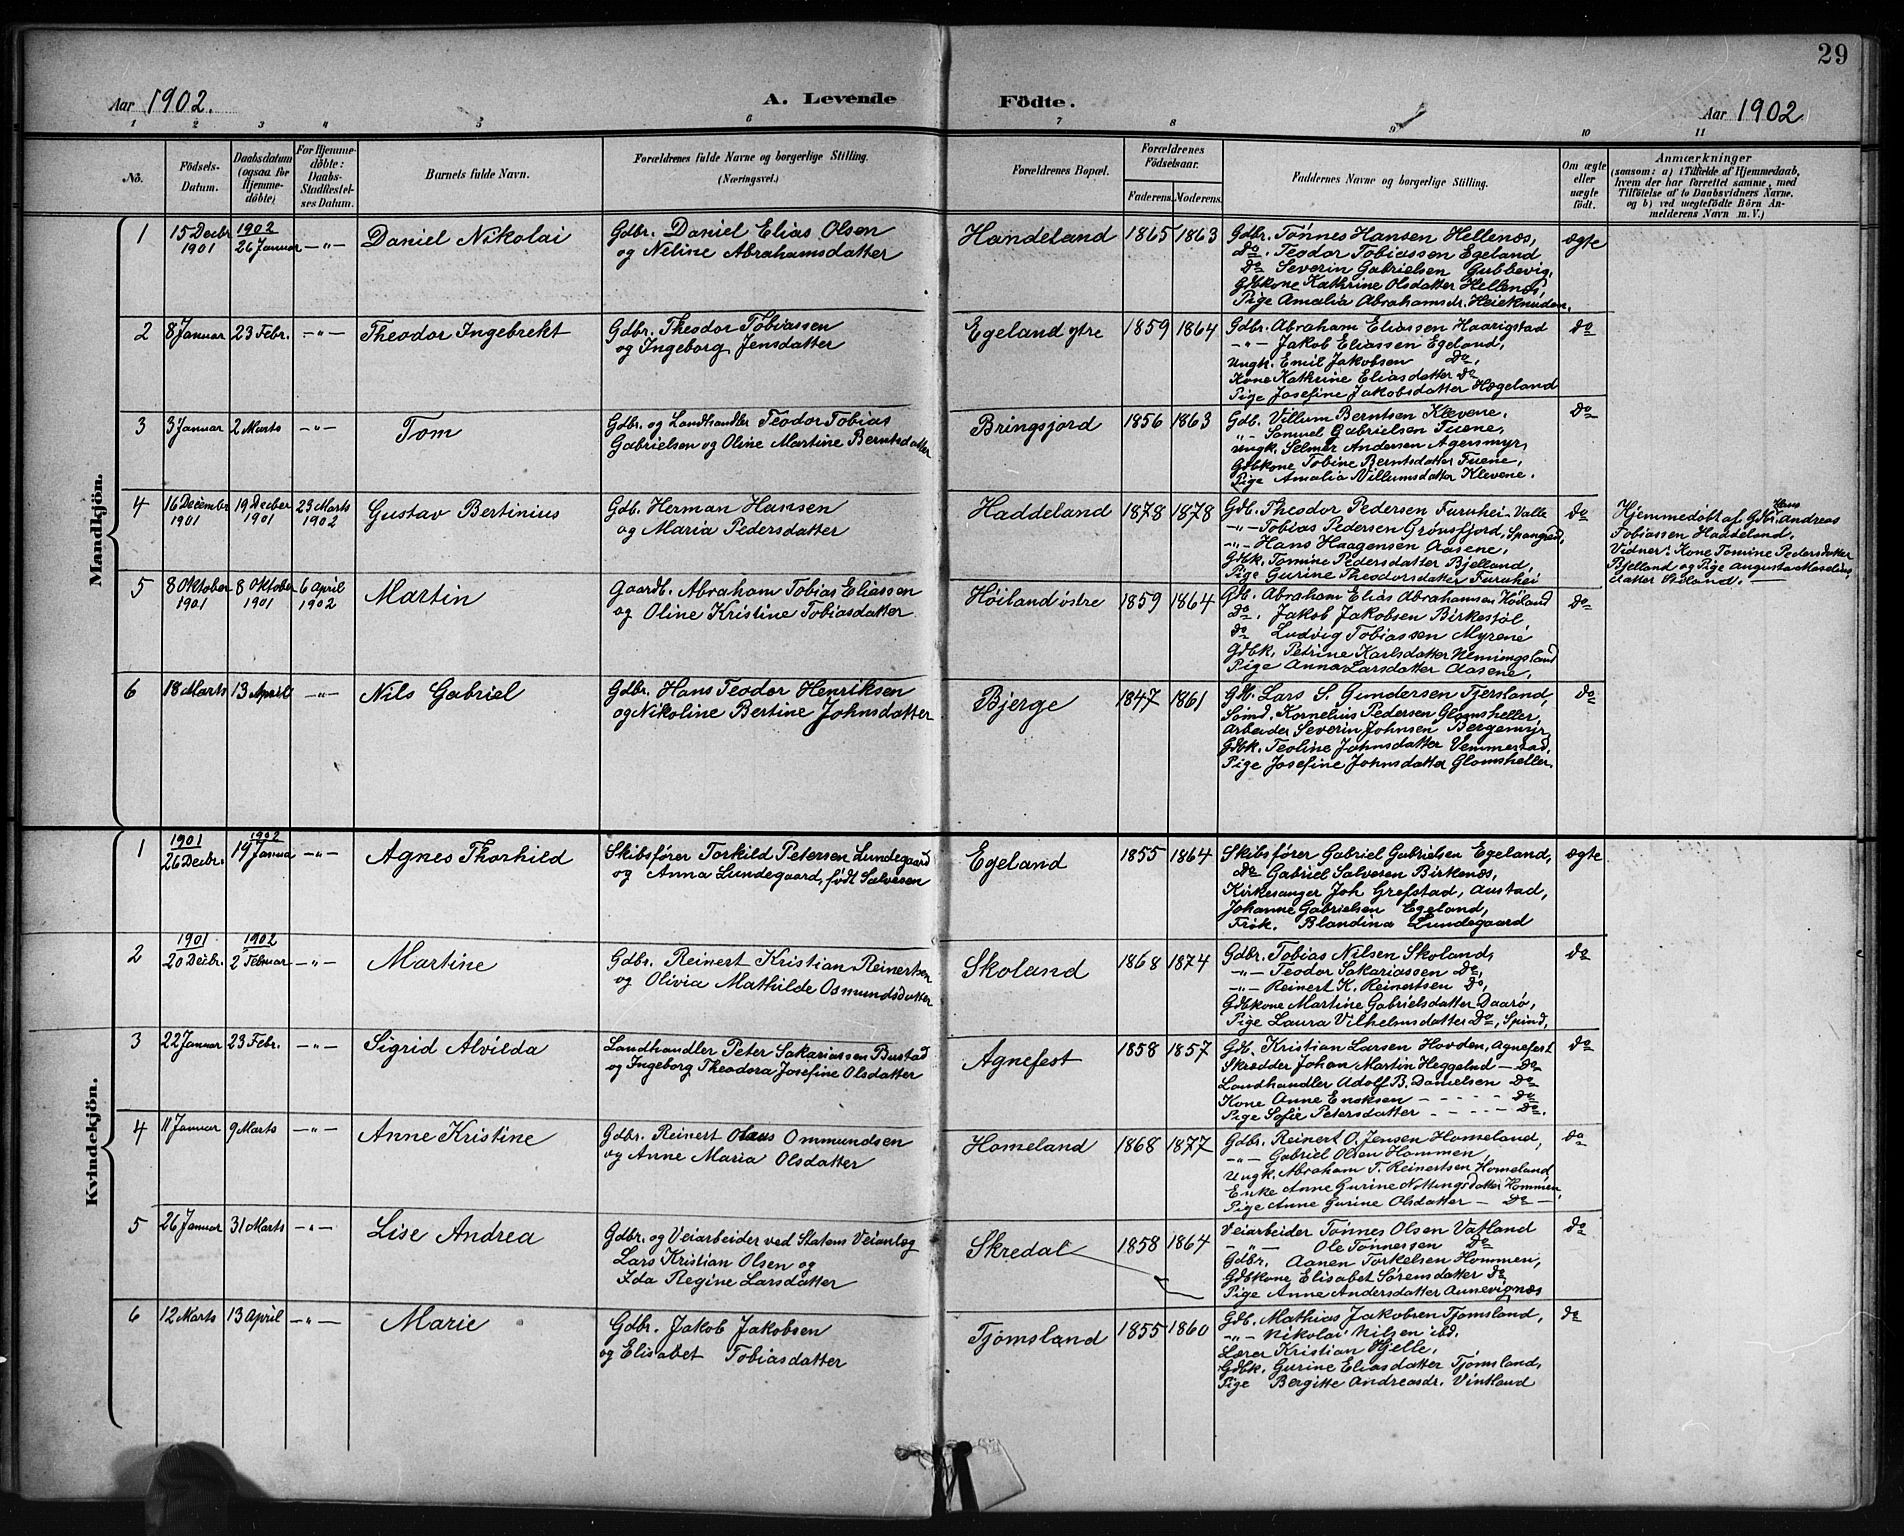 29
Aar 1902.
A. Levende Födte.
Aar 1902
1 2 3 4 5 6 7 8 9 10 11
No.
Födsels-
Datum.
Daabsdatum
(ogsaa for
Hjemme-
döbte)
For Hjemme-
döbte:
Daabs-
Stadfæstel-
ses Datum.
Barnets fulde Navn.
Forældrenes fulde Navne og borgerlige Stilling.
(Næringsvei.)
Forældrenes Bopæl.
Forældrenes
Födselsaar.
Faderens. Moderens.
Faddernes Navne og borgerlige Stilling.
Om ægte
eller
uægte
født.
Anmærkninger
(saasom: a) i Tilfælde af Hjemmedaab,
hvem der har forrettet samme, med
Tilföielse af to Daabsvidners Navne,
og b) ved uegtefödte Börn An-
melderens Navn m. V.)
Mandkjön.
1
15 Decbr
1901
1902
26 Januar
—"—
Daniel Nikolai
Gdbr. Daniel Elias Olsen
og Neline Abrahamsdatter
Handeland
1865
1863
Gdbr. Tönnes Hansen Hellenes,
do. Teodor Tobiassen Egeland
do Severin Gabrielsen Gubbevig,
Gdbkone Kathrine Olsdatter Hellenes,
Pige Amalia Abrahamsdr. Heieknuden.
ægte
2
8 Januar
23 Febr.
—"—
Theodor Ingebrekt
Gdbr. Theodor Tobiassen
og Ingeborg Jensdatter
Egeland ytre
1859
1864
Gdbr. Abraham Eliassen Haarigstad
—"— Jakob Eliassen Egeland,
Ungk. Emil Jakobsen do,
Kone Kathrine Eliasdatter do
Pige Josefine Jakobsdatter Hægeland
do
3
3 Januar
2 Marts
—"—
Tom
Gdbr. og Landhandler Teodor Tobias
Gabrielsen og Oline Martine Berntsdatter
Bringsjord
1856
1863
Gdb. Villum Berntsen Klevene.
"— Samuel Gabrielsen Fuene,
Ungk. Selmer Andersen Agersmyr,
Gdbkone Tobine Berntsdatter Fuene,
Pige Amalia Villumsdatter Klevene.
do
4
16 Decembr
1901
19 Decber
1901
23 Marts
1902
Gustav Bertinius
Gdb. Herman Hansen
og Maria Pedersdatter
Haddeland
1878
1878
Gdb. Theodor Pedersen Furuhei Valle
—"— Tobias Pedersen Grönsfjord, Spangred,
—"— Hans Haagensen Aasene,
Gdbk. Tomine Pedersdatter Bjelland,
Pige Gurine Theodorsdatter Furuhei
do
Hjemmedøbt af Gdbr. Hans Andreas
Tobiassen Haddeland.
Vidner: Kone Tomine Pedersdatter
Bjelland og Pige Augusta
datter
5
8 Oktober
1901
8 Oktober
1901
6 April
1902
Martin
Gaardb. Abraham Tobias Eliassen
og Oline Kristine Tobiasdatter
Høiland østre
1859
1864
Gdb. Abraham Elias Abrahamsen Høiland
do. Jakob Jakobsen Birkestøl
do Ludvig Tobiassen Myrene
Gdbk. Petrine Karlsdatter Nemingsland
Pige Anna Larsdatter Aasene,
do
6
18 Marts
13 April
—"—
Nils Gabriel
Gdbr. Hans Teodor Henriksen
og Nikoline Bertine Johnsdatter
Bjerge
1847
1861
Gdb. Lars S. Gundersen Tjersland,
Sömd. Kornelius Pedersen Glomsheller,
Arbeider Severin Johnsen Bergemyr,
Gdbk. Teoline Johnsdatter Vemmestad,
Pige Josefine Johnsdatter Glomsheller.
do
Kvindekjön.
1
1901
26 Decbr.
1902
19 Janua
—"—
Agnes Thorhild
Skibsfører Torkild Petersen Lundegaard
og Anna Lundegaard, født Salvesen
Egeland
1855
1864
Skibsfører Gabriel Gabrielsen Egeland,
do Gabriel Salvesen Birkenes,
Kirkesanger Joh Grefstad, Austad,
Johanne Gabrielsen Egeland,
Frøk. Blandina Lundegaard
ægte
2
1901
20 Decbr.
1902
2 Februar
—"—
Martine
Gdbr. Reinert Kristian Reinertsen
og Olivia Mathilde Osmundsdatter
Skoland
1868
1874
Gdbr. Tobias Nilsen Skoland,
—"— Teodor Sakariassen do,
—"— Reinert K. Reinertsen do,
Gdbkone Martine Gabrielsdatter Daarø,
Pige Laura Vilhelmsdatter do, Spind,
do
3
22 Januar
23 Febr.
—"—
Sigrid Alvilda
Landhandler Peter Sakariassen Bustad
og Ingeborg Theodora Josefine Olsdatter
Agnefest
1858
1857
Gdb. Kristian Larsen Hovden, Agnefest
Skrædder Johan Martin Heggelnd — do
Landhandler Adolf B. Danielsen do
Kone Anne Eriksen - - - - - do
Pige Sofie Petersdatter - - - - - do.
do
4
11 Januar
9 Marts
—"—
Anne Kristine
Gdbr. Reinert Olaus Ommundsen
og Anne Maria Olsdatter
Homeland
1868
1877
Gdbr. Reinert O. Jensen Homeland,
—"— Gabriel Olsen Hommen,
Ungk. Abraham T. Reinertsen Homeland
Enke Anne Gurine Nottingsdatter Hommen,
Pige Anne Gurine Olsdatter — do —
do
5
26 Januar
31 Marts
—"—
Lise Andrea
Gdbr. og Veiarbeider ved Statens Veianlæg
Lars Kristian Olsen og
Ida Regine Larsdatter
Skredal
1858
1864
Veiarbeider Tønnes Olsen Vatland
—"— Ole Tønnessen do
Gdbr. Aanen Torkelsen Hommen,
Gdbkone Elisabet Sørensdatter do
Pige Anne Andersdatter Annevignæs
do
6
12 Marts
13 April
—"—
Marie
Gdbr. Jakob Jakobsen
og Elisabet Tobiasdatter
Tjømsland
1855
1860
Gdb. Mathias Jakobsen Tjomsland,
—"— Nikolai Nilsen ibd.
Lærer Kristian Hjelle,
Gdbk. Gurine Eliasdatter Tjömsland,
Pige Bergitte Andreasdr. Vintland
do